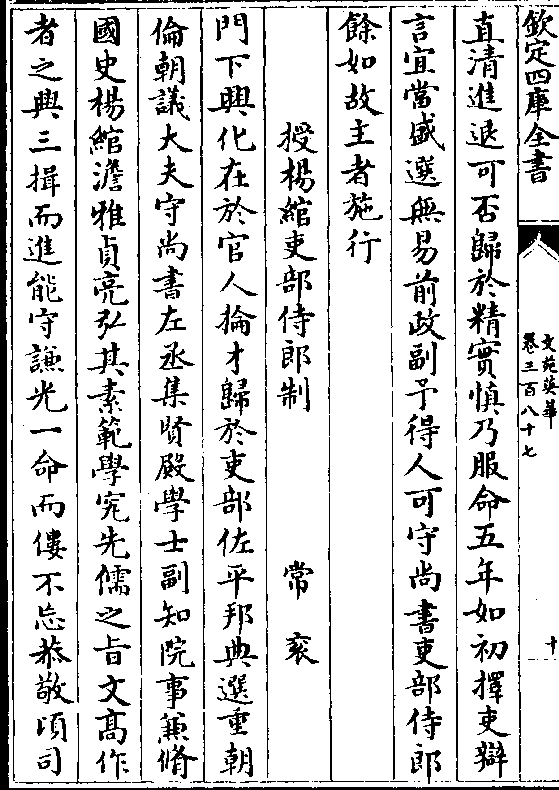 欽定四庫全書
文苑英華
卷三百八十七
十
直清進退可否歸於精實慎乃服命五年如初擇吏辯
言宜當盛選無易前政副予得人可守尚書吏部侍郎
餘如故主者施行
授楊綰吏部侍郎制 常衮
門下興化在於官人掄才歸於吏部佐平邦典選重朝
倫朝議大夫守尚書左丞集賢殿學士副知院事兼脩
國史楊綰澹雅貞亮弘其素範學究先儒之旨文高作
者之興三揖而進能守謙光一命而僂不忘恭敬頃司